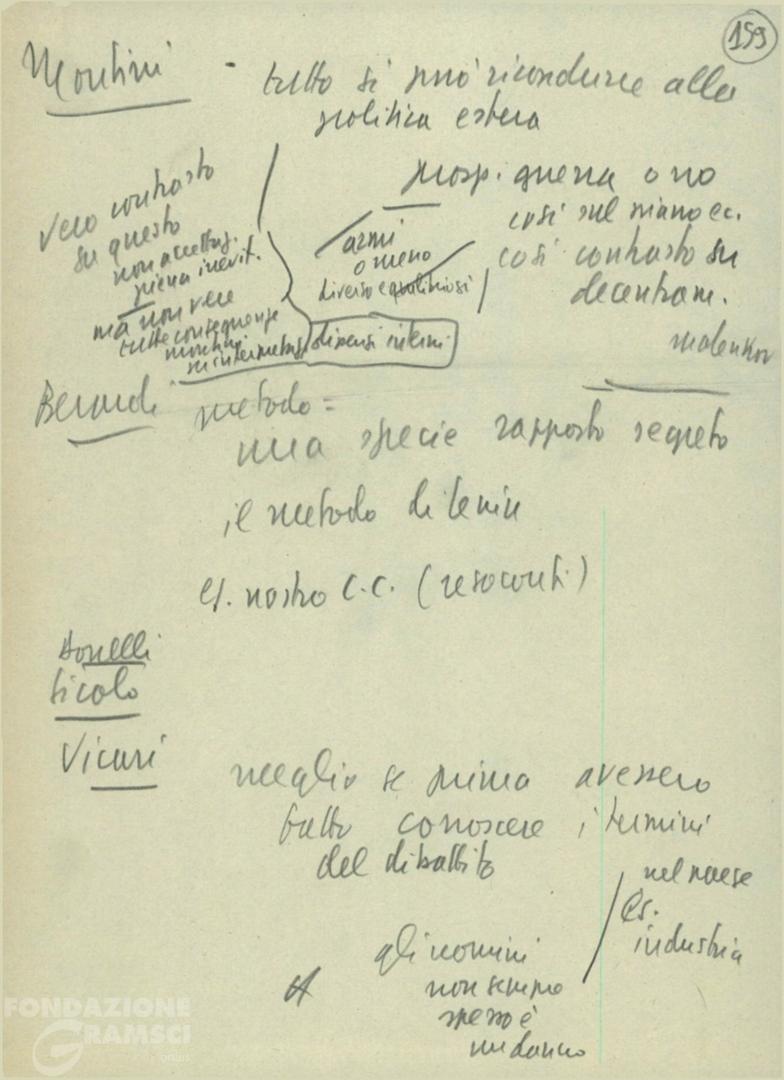 159
Montini - tutto si può ricondurre alla
politica estera
prosp. guerra o no
così sul piano ec.
così contrasto su
decentram.
malenkov
armi
o meno
diverse
vero contrasto
su questo
non accettaz.
piena inevit.
ma non vere
tutte conseguenze
montini
dissensi interni
Berardi metodo =
una specie rapporto segreto
il metodo di Lenin
es. nostro C.C. (resoconti)
Bonelli
Ticolo
Vicari
meglio se prima avessero
fatto conoscere i termini
del dibattito
nel paese
es.
industria
gli uomini
non sempre
spesso è
un danno
FONDAZIONE
GRAMSCI
onlus